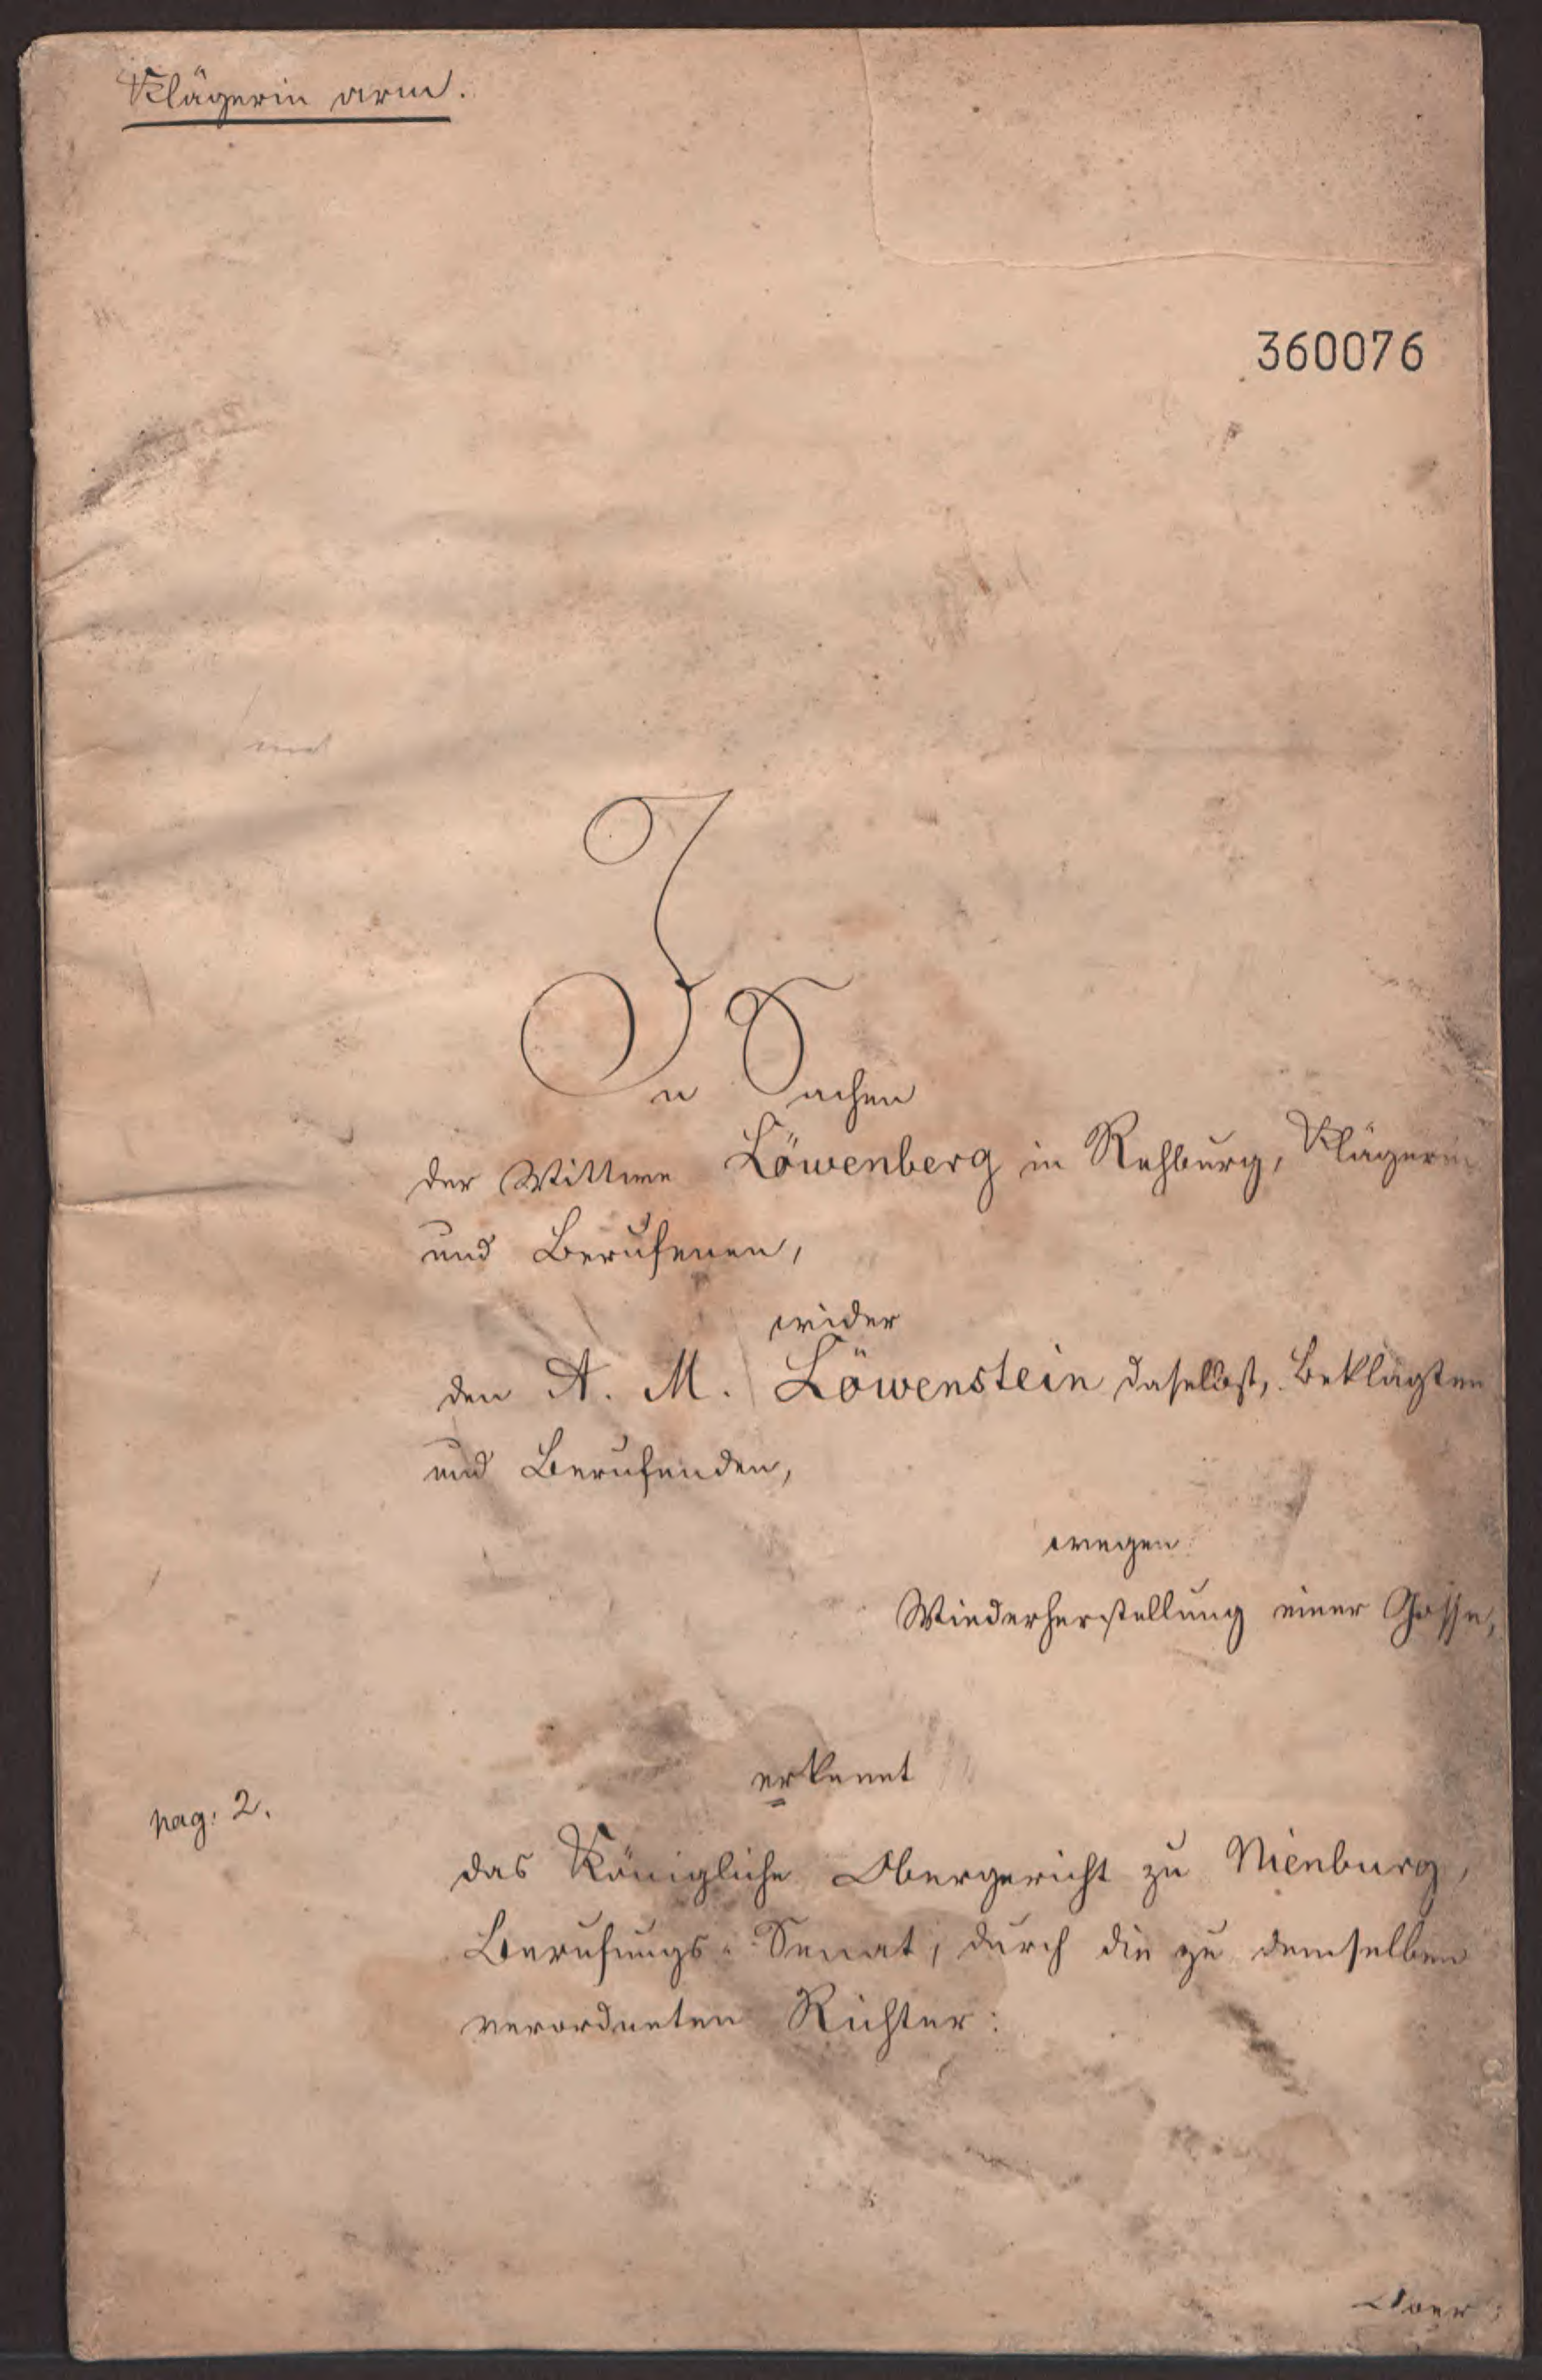 Klägerin arm.
360076
In Sachen
der Wittwe Löwenberg in Rehburg, Klägerin
und Berufenen,
wider
den A. M. Löwenstein daselbst, Beklagten
und Berufenden,
wegen
Wiederherstellung einer Gosse,
erkennt
pag: 2.
das Königliche Obergericht zu Nienburg,
Berufungs-Senat, durch die zu demselben
verordneten Richter: